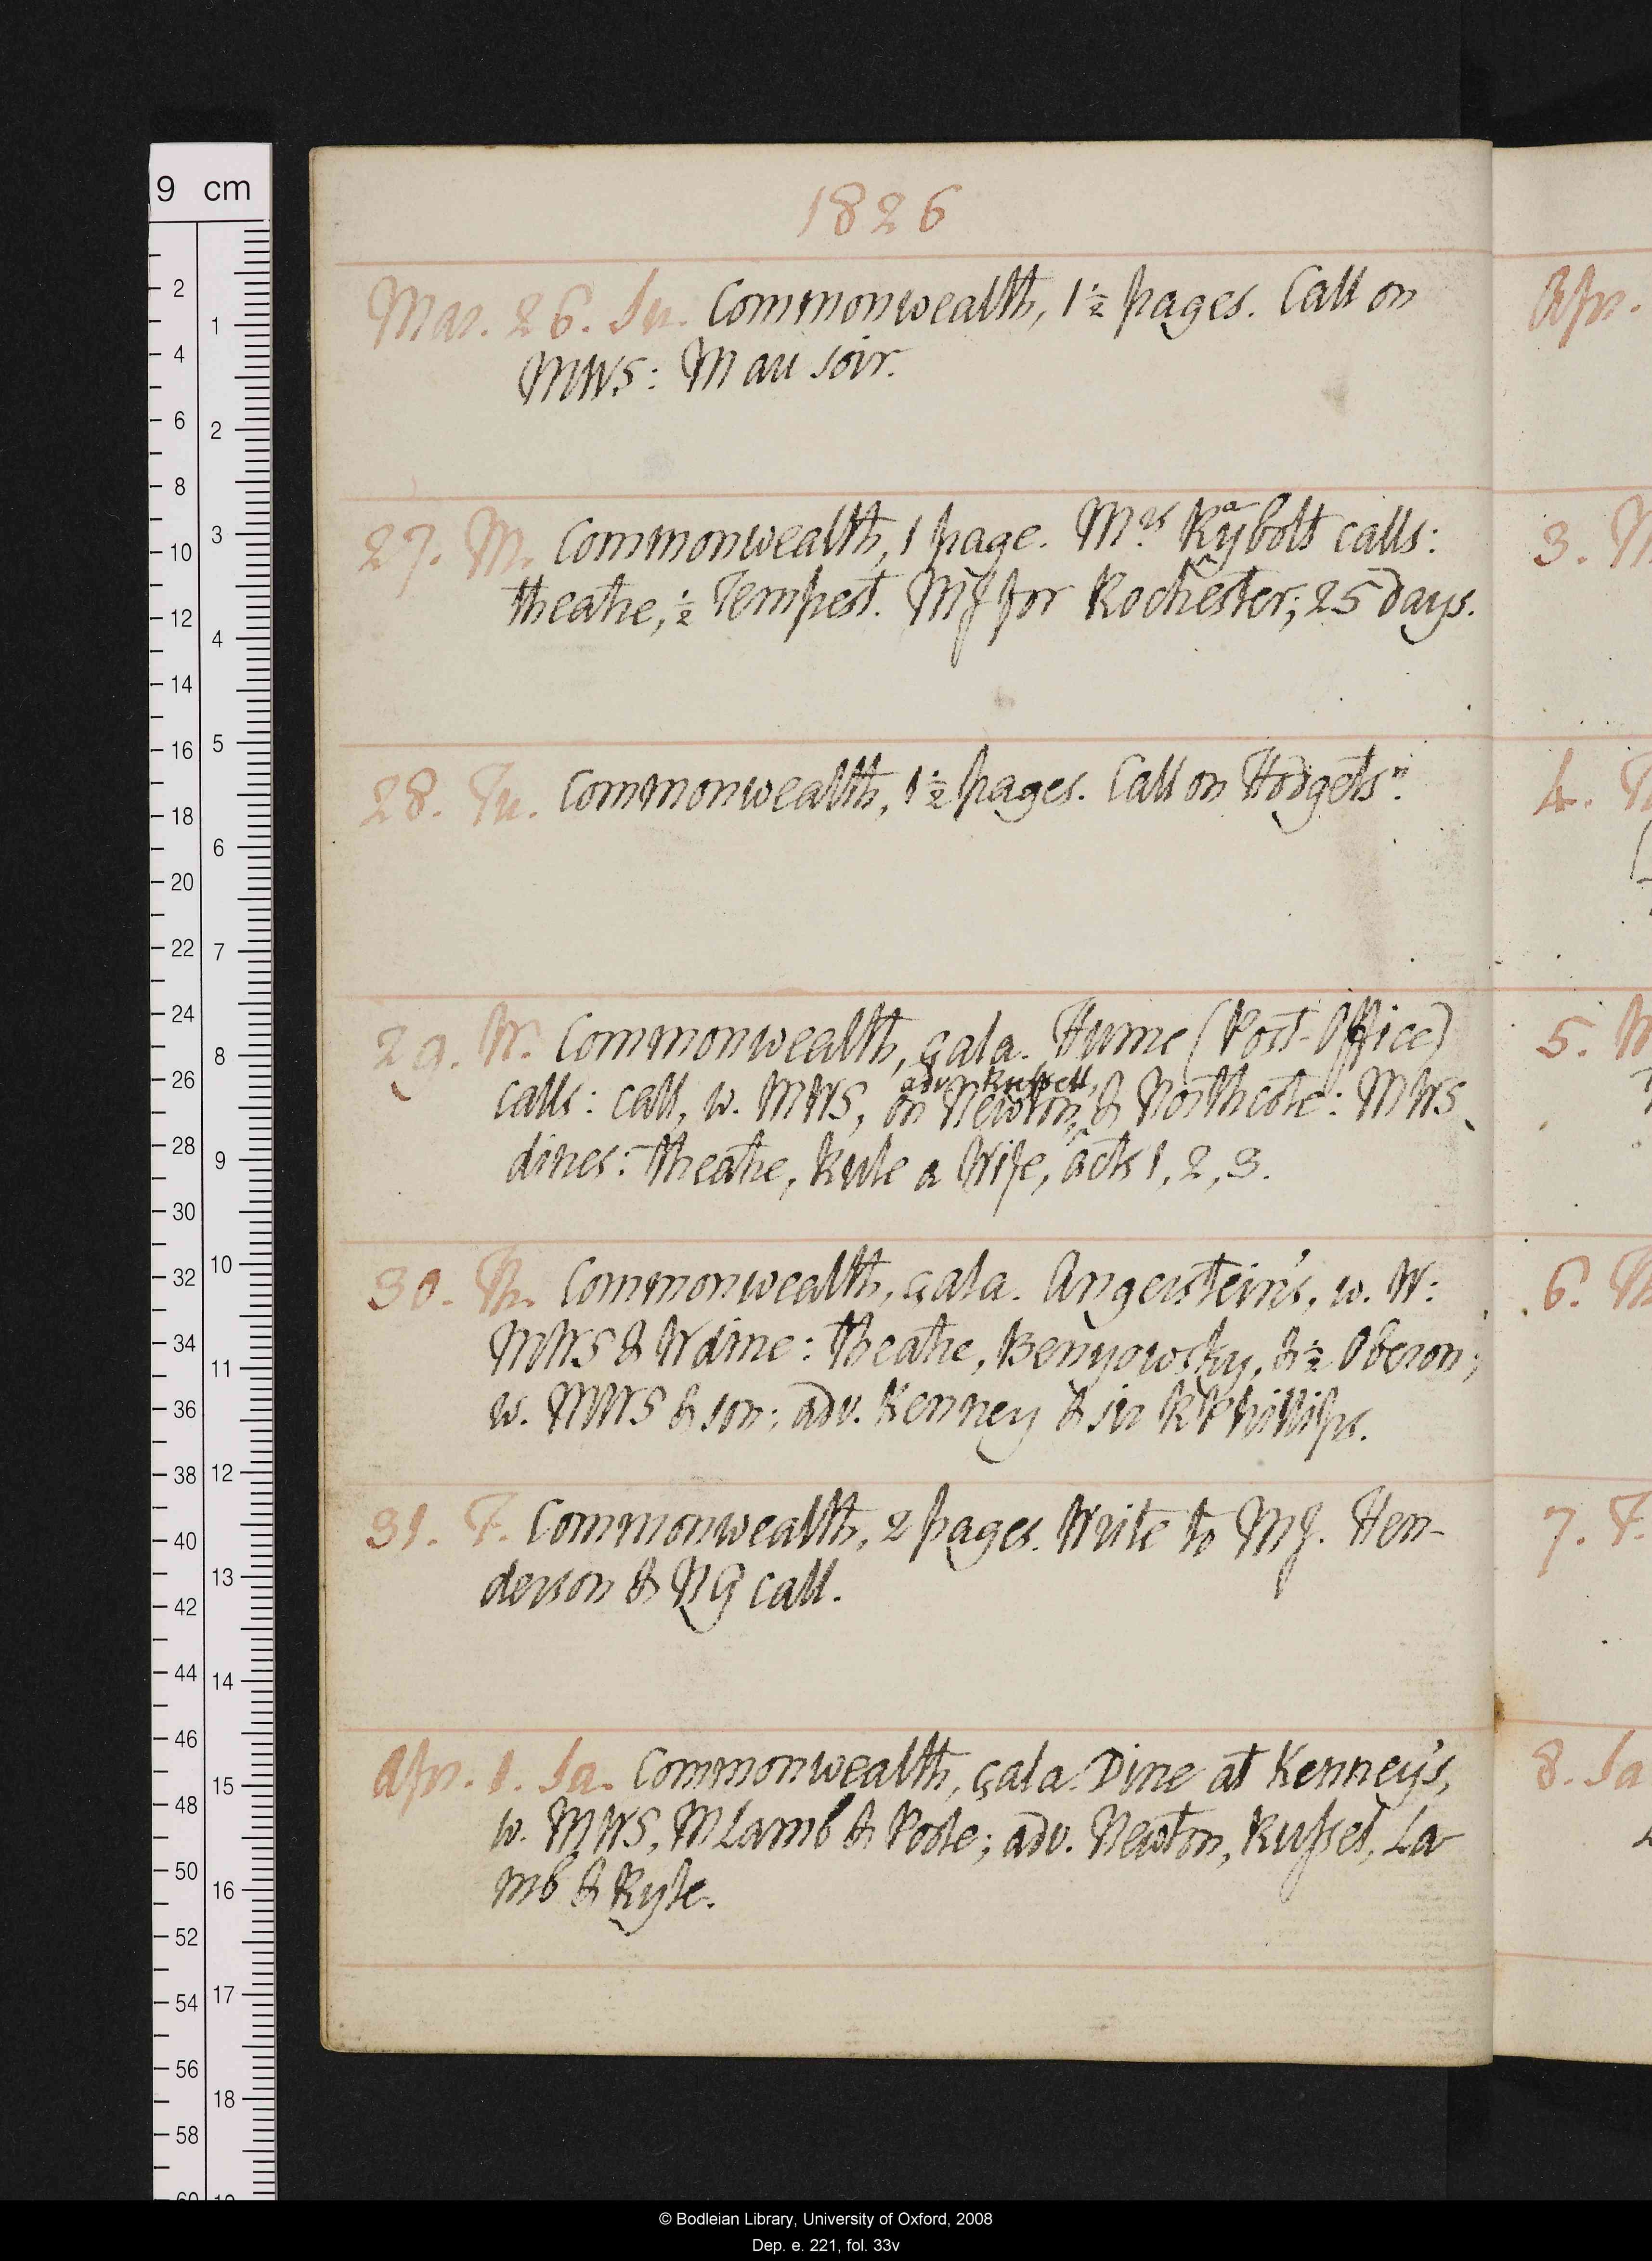 1826
Mar. 26. Su. Commonwealth, 1 1/2 pages. Call on
MWS: M au soir.
27. M. Commonwealth, 1 page. Mrs Raybolt calls:
theatre, 1/2 Tempest. MJ for Rochester; 25 days.
28. Tu. Commonwealth, 1 1/2 pages. Call on Hodgetsn.
29. W. Commonwealth, çala. Hume (Post-Office)
calls: call, w. MWS, on Newton, adv. Russell, & Northcote: MWS
dines: theatre, Rule a Wife, acts 1, 2, 3.
30. Th. Commonwealth, çala. Angerstein's, w. W:
MWS & W dine: theatre, Benyowsky, & 1/2 Oberon;
w. MWS & son; adv. Kenney & sir R Phillips.
31. F. Commonwealth, 2 pages. Write to MJ. Hen-
derson & NG call.
Apr. 1. Sa. Commonwealth, çala. Dine at Kenney's,
w. MWS, M Lamb & Poole; adv. Newton, Russel, La
mb & Ryle.
Apr.
3. M
4. T
5. W
6. Th
7. F.
8. Sa
9 cm
2
4
6
8
10
12
14
16
18
20
22
24
26
28
30
32
34
36
38
40
42
44
46
48
50
52
54
56
58
60
1
2
3
4
5
6
7
8
9
10
11
12
13
14
15
16
17
18
19
© Bodleian Library, University of Oxford, 2008
Dep. e. 221, fol. 33v